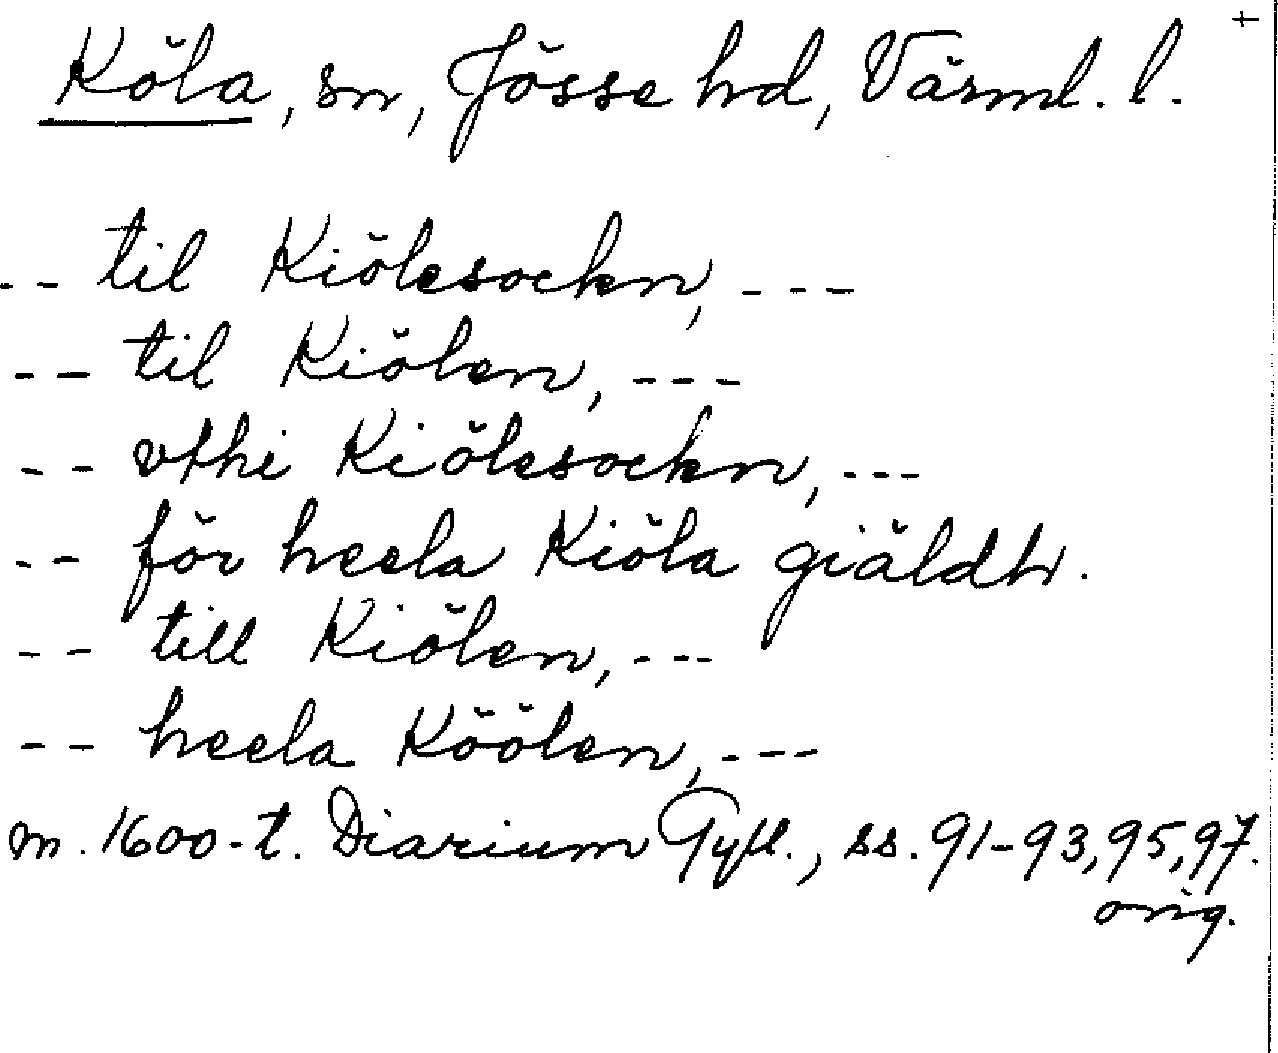 +
Köla, sn, Jösse hd, Värml. l.
-- til Kiölesockn, ---
-- til Kiölen, ---
-- vthi Kiölesockn, ---
-- för heela Kiöla giäldh.
-- till Kiölen, ---
-- heela Köölen, ---
m. 1600-t. Diarium Gyll., ss. 91-93, 95, 97.
orig.